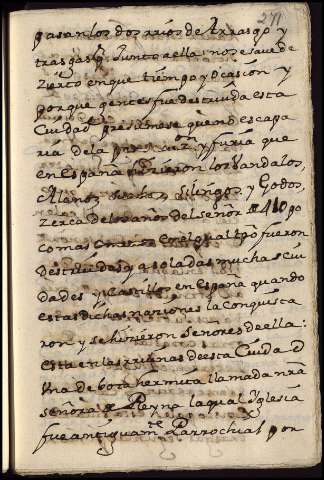 271
pasan los dos rrios de Arrago y
tras gasº Junto a ella: no se save de
Zierto en que tiempo y ocasion y
porque gentes fue destruida esta
Ciudad presumese que no escapa
ria de la y furia que
en España hizieron los Vandalos,
Alanos, suebos, Silengos, y Godos,
Zerca de los años del señor 410 po
co mas o menos en el qual tpo fueron
destruidas y asoladas muchas Ciu
dades y Castillos en España quando
estas dichas naziones la Conquista
ron y se hizieron Señores de ella:
Esta en las rruinas de esta Ciudad
Una debota hermita llamada nrª
señora Reyna la qual Iglesia
fue antiguamte Parrochial por